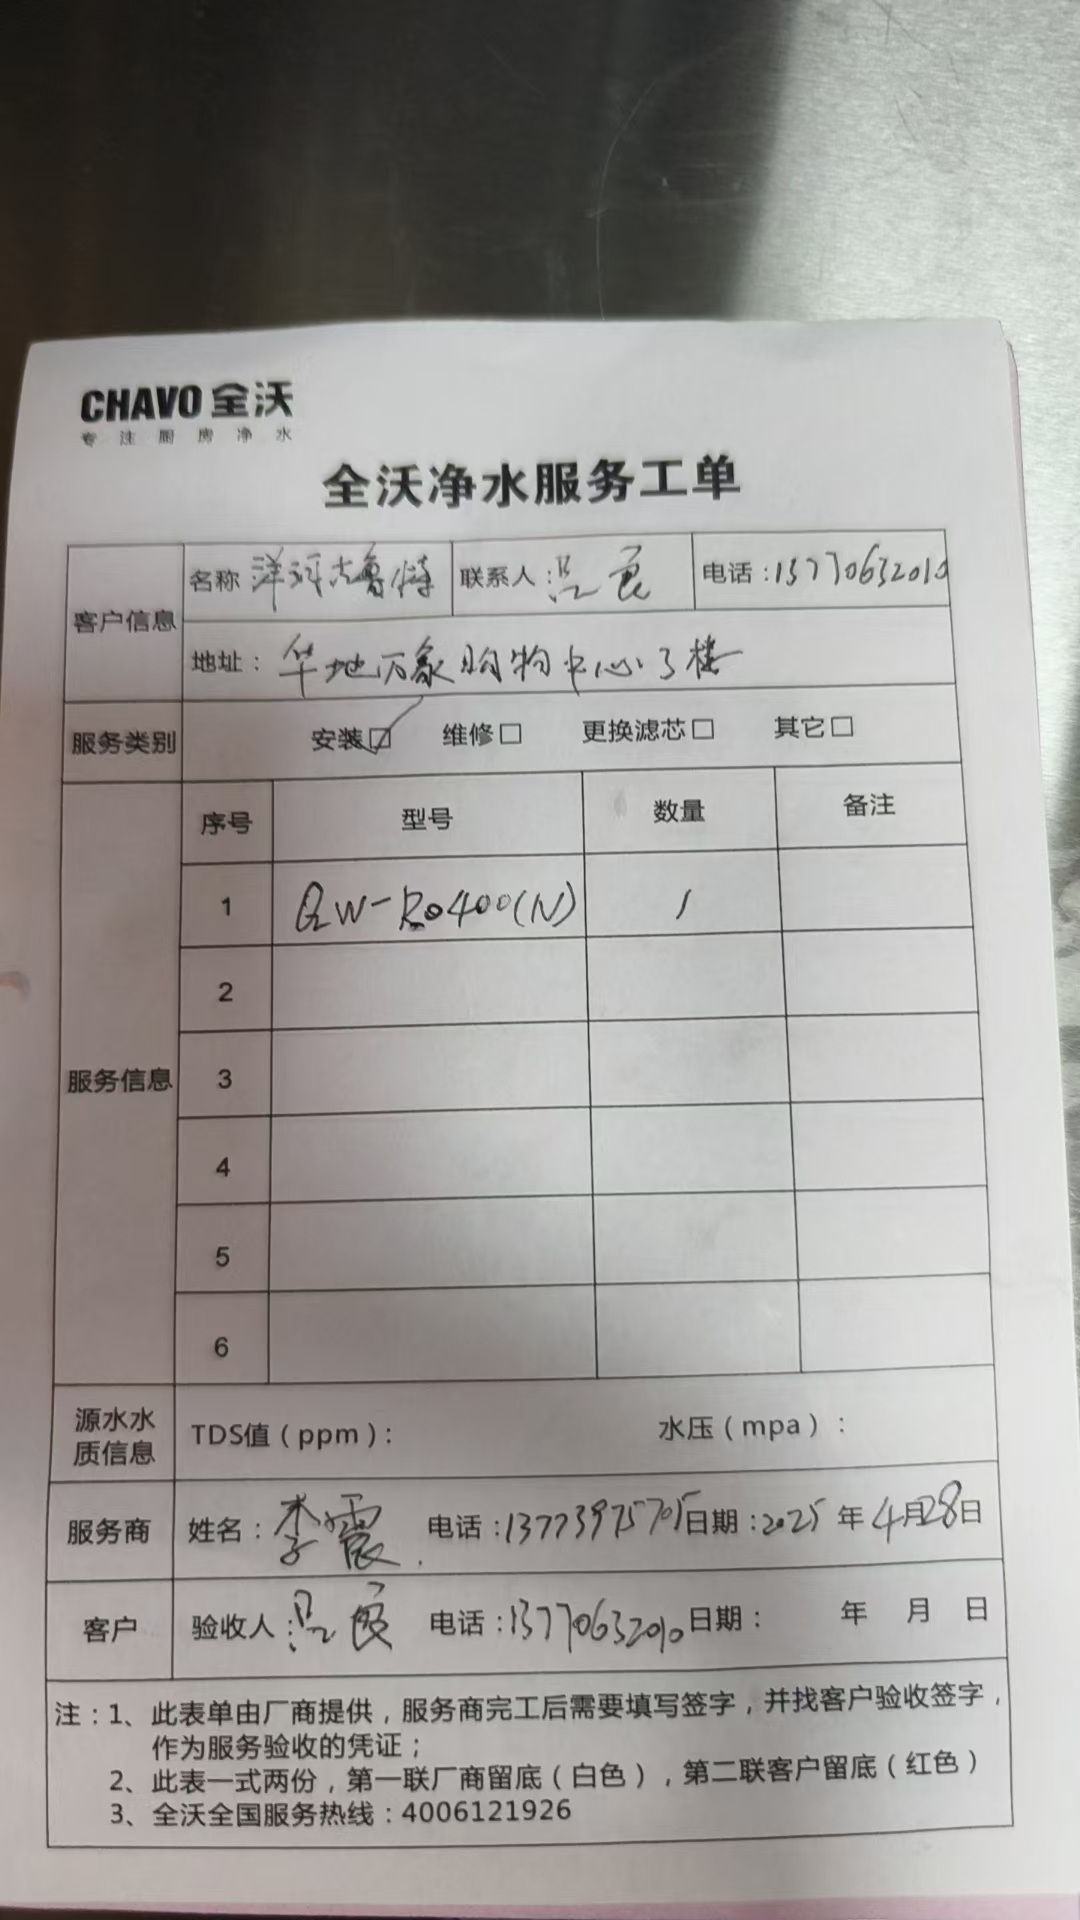 CHAVO 全沃
专注厨房净水
全沃净水服务工单
客户信息
名称 洋河古鲁特 联系人: 温良 电话:13770632010
地址: 华地万象购物中心3楼
服务类别 安装☑ 维修□ 更换滤芯□ 其它□
服务信息
序号 型号 数量 备注
1 QW-Ro400(N) 1
2
3
4
5
6
源水水质信息 TDS值(ppm): 水压(mpa):
服务商 姓名: 李震 电话:13773975705 日期:2025年4月28日
客户 验收人: 温良 电话:13770632010 日期: 年 月 日
注:1、此表单由厂商提供,服务商完工后需要填写签字,并找客户验收签字,
作为服务验收的凭证;
2、此表一式两份,第一联厂商留底(白色),第二联客户留底(红色)
3、全沃全国服务热线:4006121926